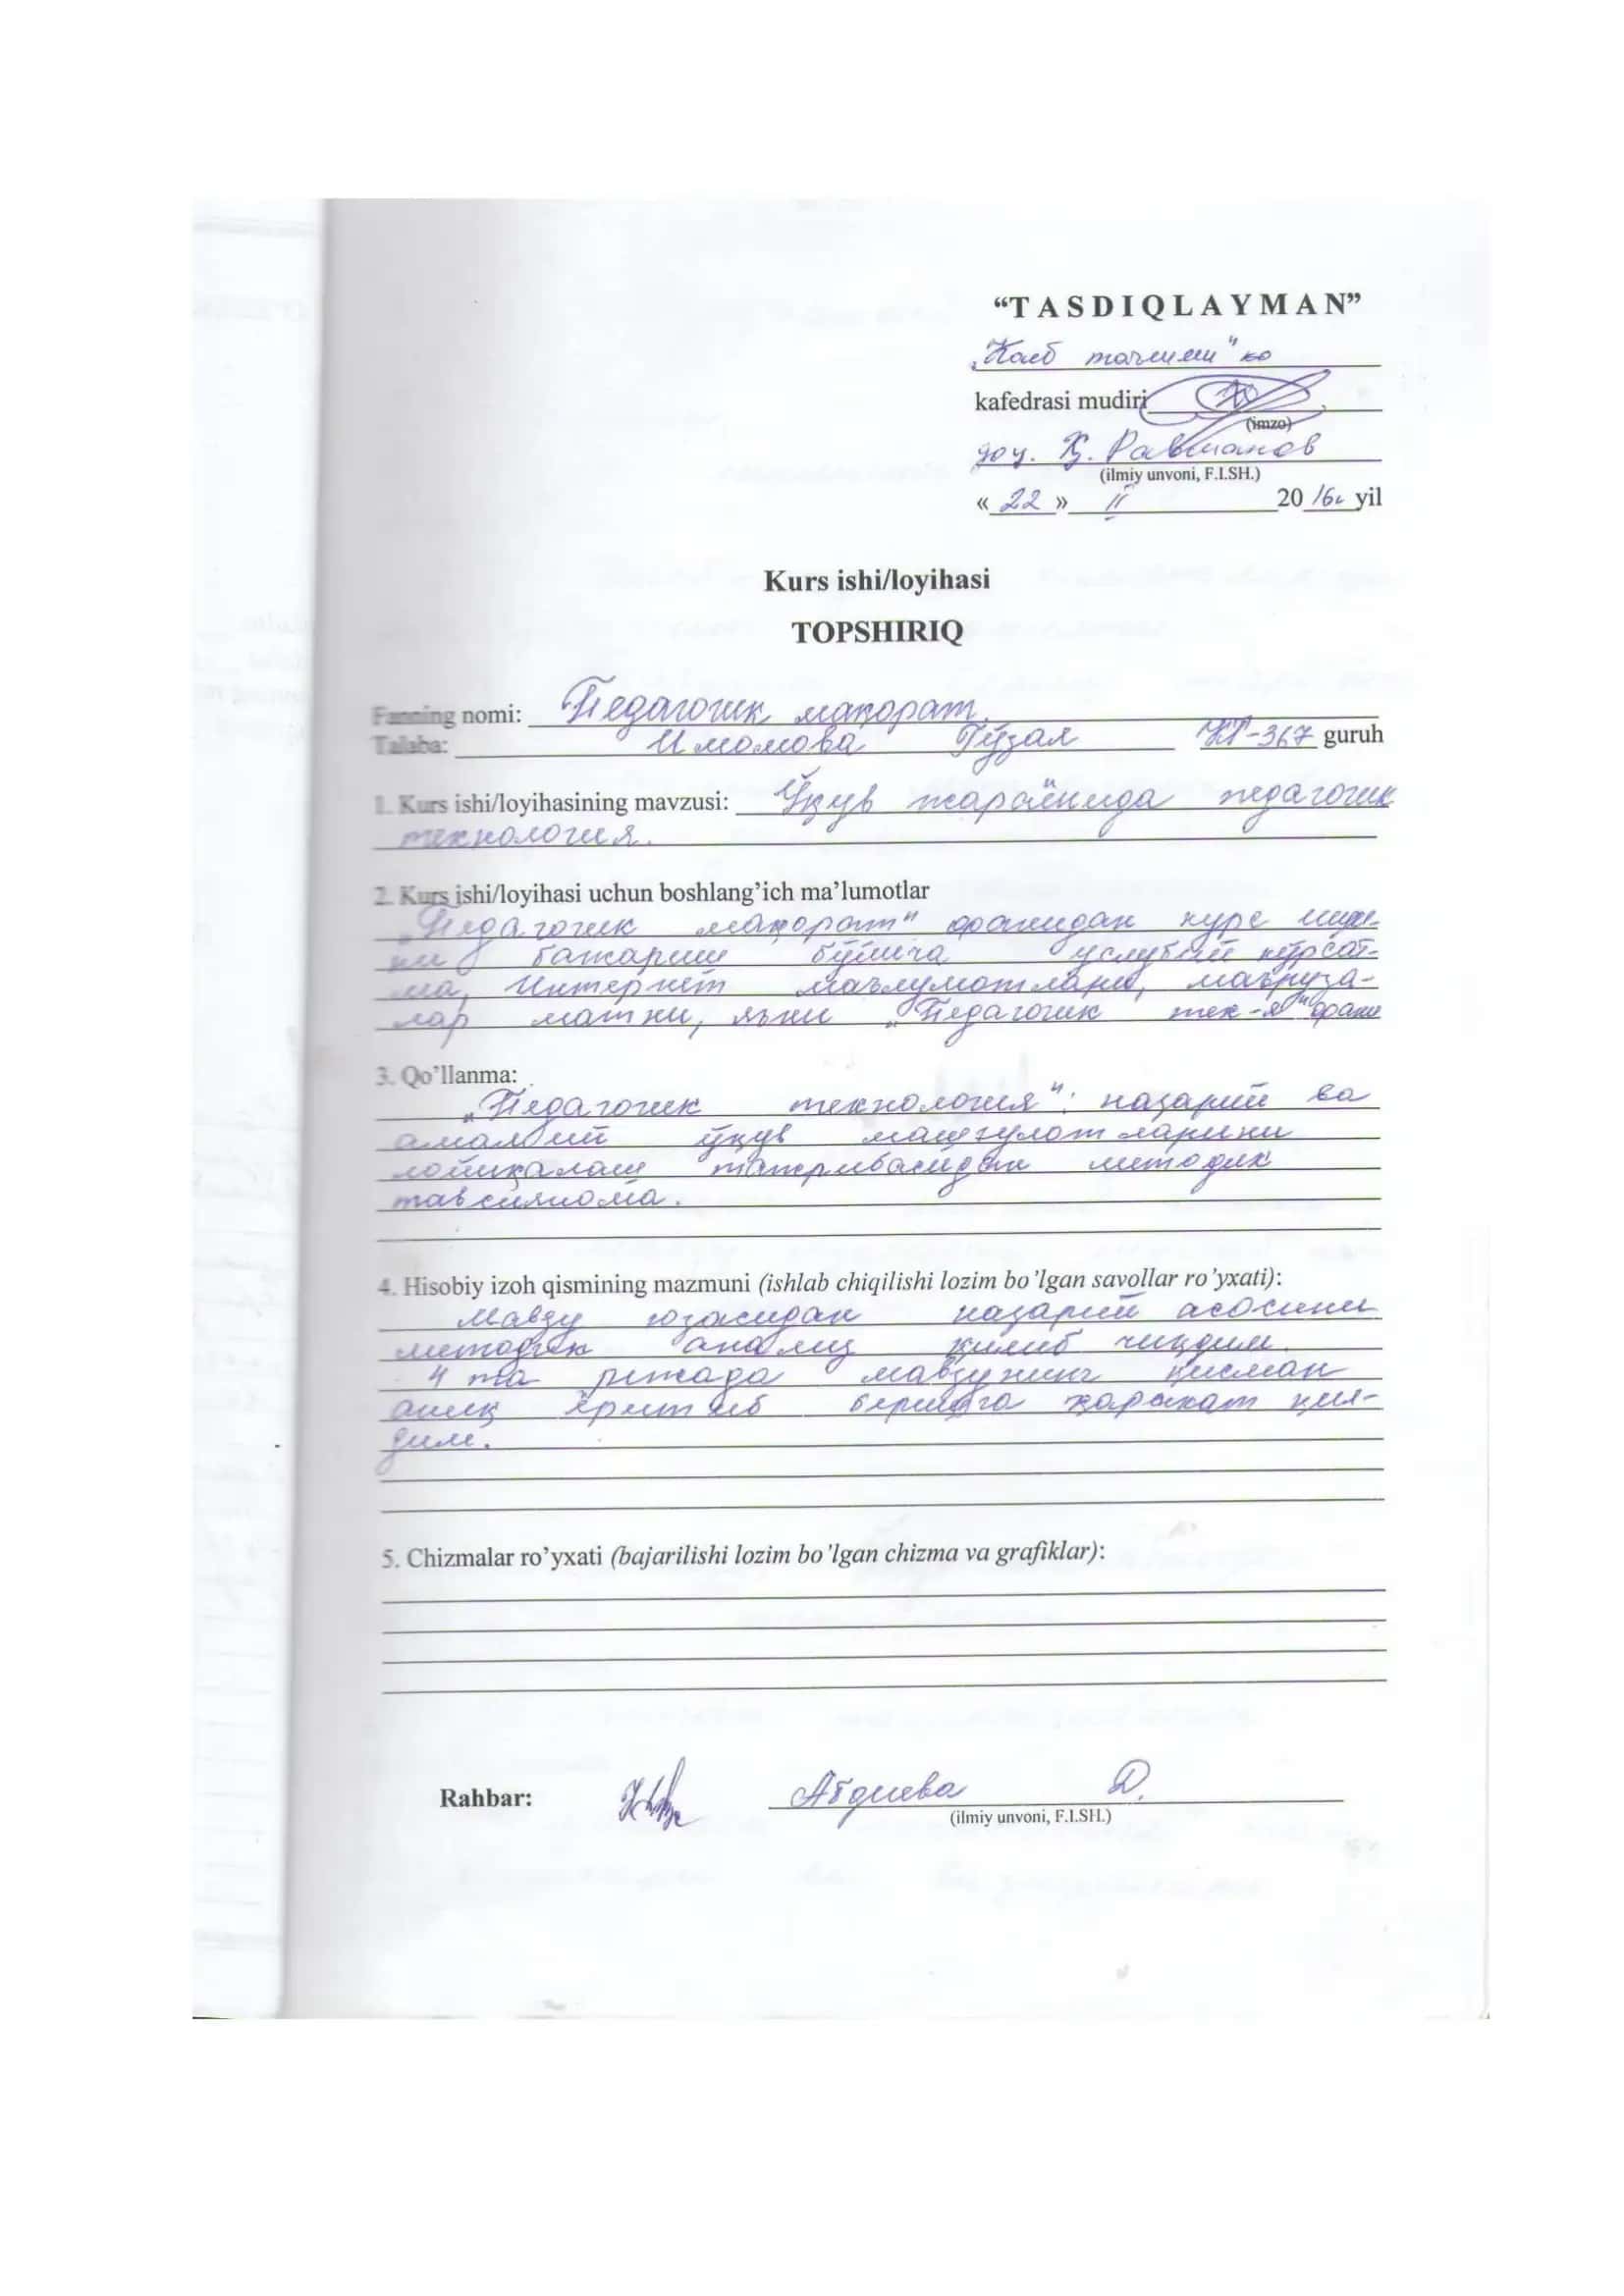 “T A S D I Q L A Y M A N”
„Касб таълими“ ка
kafedrasi mudiri
(imzo)
доц. Қ. Равшанов
(ilmiy unvoni, F.I.SH.)
« 22 » II 2016 yil
Kurs ishi/loyihasi
TOPSHIRIQ
Fanning nomi: Педагогик маҳорат.
Talaba: Имомова Гўзал КТ-367 guruh
1. Kurs ishi/loyihasining mavzusi: Ўқув жараёнида педагогик
технология.
2. Kurs ishi/loyihasi uchun boshlang’ich ma’lumotlar
„Педагогик маҳорат“ фанидан курс иши-
ни бажариш бўйича услубий кўрсат-
ма, Интернет маълумотлари, маъруза-
лар матни, яъни „Педагогик тех-я“ фани
3. Qo’llanma:
„Педагогик технология“: назарий ва
амалий ўқув машғулотларини
лойиҳалаш тажрибасидан методик
тавсиянома.
4. Hisobiy izoh qismining mazmuni (ishlab chiqilishi lozim bo’lgan savollar ro’yxati):
Мавзу юзасидан назарий асосини
методик анализ қилиб чиқдим.
4 та режада мавзунинг қисман
аниқ ёритиб беришга ҳаракат қил-
дим.
5. Chizmalar ro’yxati (bajarilishi lozim bo’lgan chizma va grafiklar):
Rahbar: Абдиева Д.
(ilmiy unvoni, F.I.SH.)